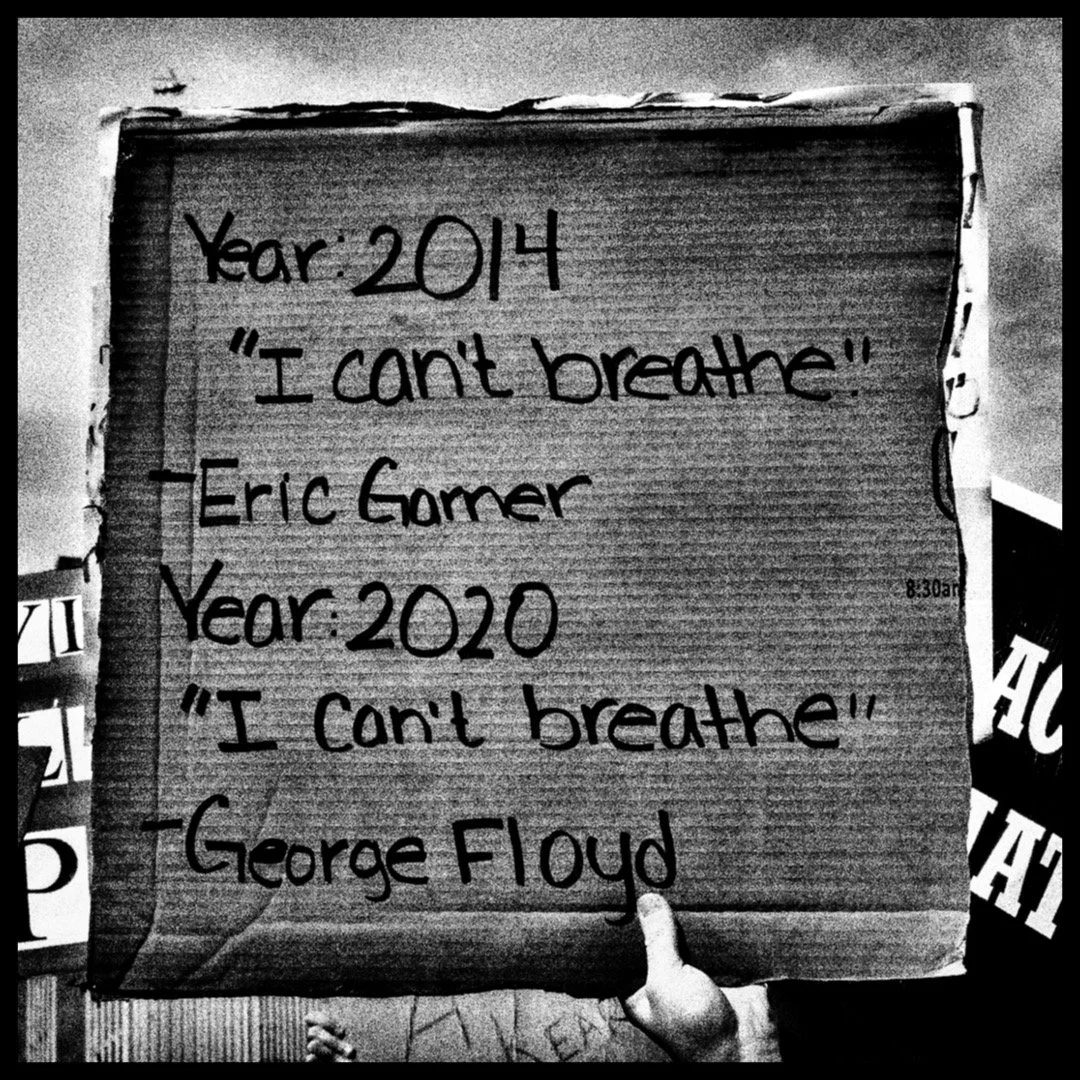 Year: 2014
"I can't breathe"
-Eric Garner
Year: 2020
"I can't breathe"
-George Floyd
8:30am
VI
P
AC
MAT